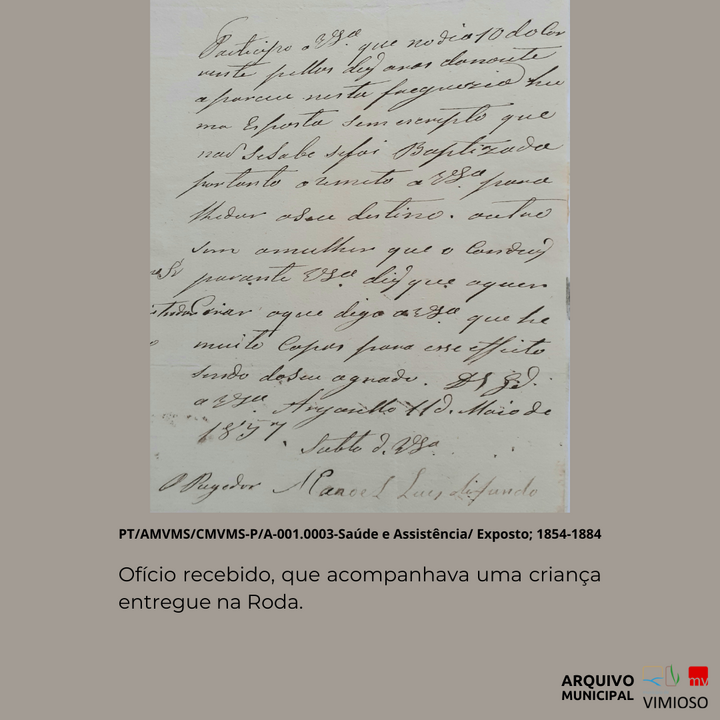 Participo a VSª. que no dia 10 do Cor
rente pellas dez oras danoute
apareceu nesta freguezia hu
ma Esposta sem escripto que
naõ Sesabe sefoi Baptizada
portanto aremeto a VSª para
lhedar oseu destino. outro
sim amulher que a Conduz
parante VSª diz que aquer
Criar aque digo a VSª que he
muito Capas para esse effeito
sendo deseu agrado. Ds gd.
a VSª. Argozello 11 d. Maio de
1857
Subto d. VSª
O Regedor Manoel Luis
PT/AMVMS/CMVMS-P/A-001.0003-Saúde e Assistência/ Exposto; 1854-1884
Ofício recebido, que acompanhava uma criança
entregue na Roda.
ARQUIVO
MUNICIPAL
mv
VIMIOSO